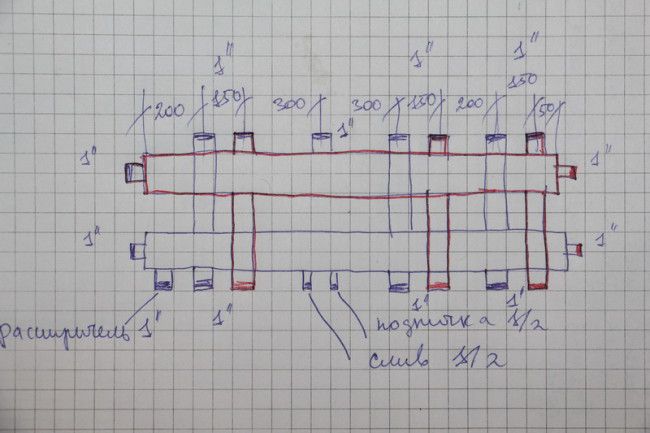 1" 1" 1"
200 150 300 300 150 200 150 50
1" 1" 1"
1" 1"
расширитель 1" 1" подпитка 1/2 1" 1"
слив 1/2